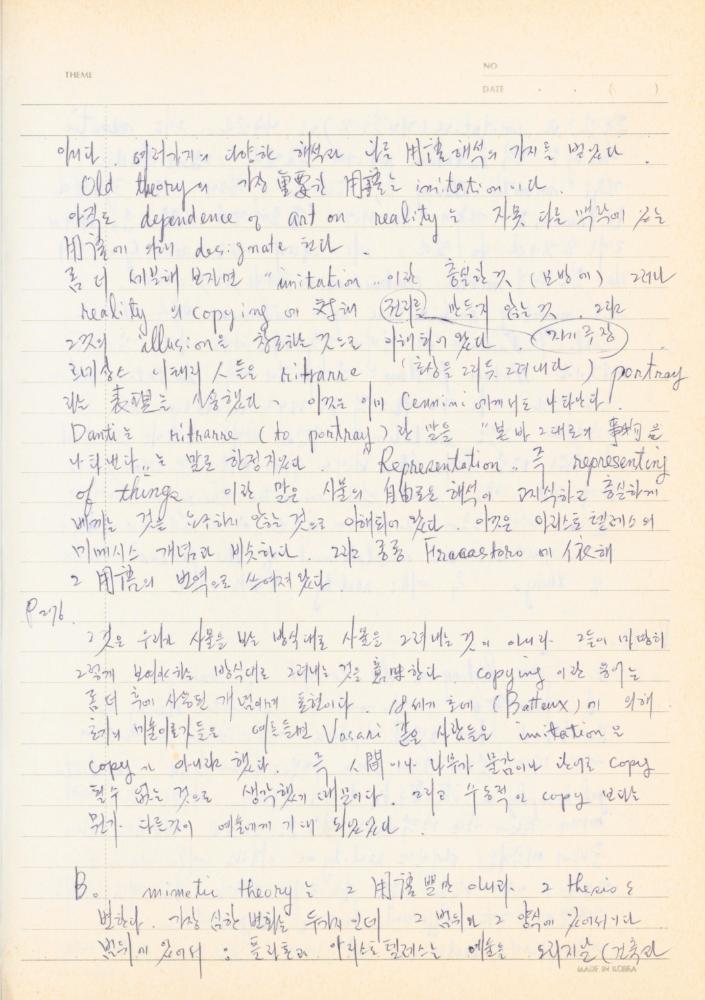 THEME
NO
DATE . . ( )
이다. 여러가지의 다양한 해석과 다른 用語해석의 가지를 벌었다.
Old theory의 가장 重要한 用語는 imitation이다
아직도 dependence of art on reality는 자못 다른 맥락에 있는
用語에 의해 designate 된다.
좀 더 세분해 보자면 "imitation"이란 충실한 것 (모방에) 그러나
reality의 copying에 対해 진리를 만들지 않는 것. 그리고
그것의 illusion을 창조하는 것으로 이해되어 왔다. (자기 주장)
르네상스 이태리 사람들은 ritrarre (초상을 그리듯 그려내다) portray
라는 表現을 사용했다. 이것은 이미 Cennini에게서도 나타난다.
Danti는 ritrarre (to portray)란 말을 "본 바 그대로의 事物을
나타낸다"는 말로 한정지었다. "Representation" 즉 representing
of things 이란 말은 사물의 自由로운 해석이 충실하게
베끼는 것을 요구하지 않는 것으로 이해되어 왔다. 이것은 아리스토텔레스의
미메시스 개념과 비슷하다. 그리고 종종 Fracastoro에 依해
그 用語의 번역으로 쓰여져 왔다
P276.
그것은 우리가 사물을 보는 방식대로 사물을 그려내는 것이 아니다. 그들이 마땅히
그렇게 보여야하는 방식대로 그려내는 것을 意味한다. copying이란 용어는
좀 더 후에 사용된 개념에의 표현이다. 18세기 초에 (Batteux)에 의해
초기의 미술이론가들은 예를들면 Vasari 같은 사람들은 imitation은
copy가 아니라 했다. 즉 人間이나 나무가 물감이나 단어로 copy
될 수 없는 것으로 생각했기 때문이다. 그리고 수동적인 copy 보다는
뭔가 다른것이 예술에게 기대 되었었다.
B. mimetic theory는 그 用語 뿐만 아니라. 그 thesis도
변한다. 가장 심한 변화는 두가지인데 그 범위와 그 양식에 있어서이다
범위에 있어서 : 플라톤과 아리스토텔레스는 예술을 오리지날 (건축과
MADE IN KOREA